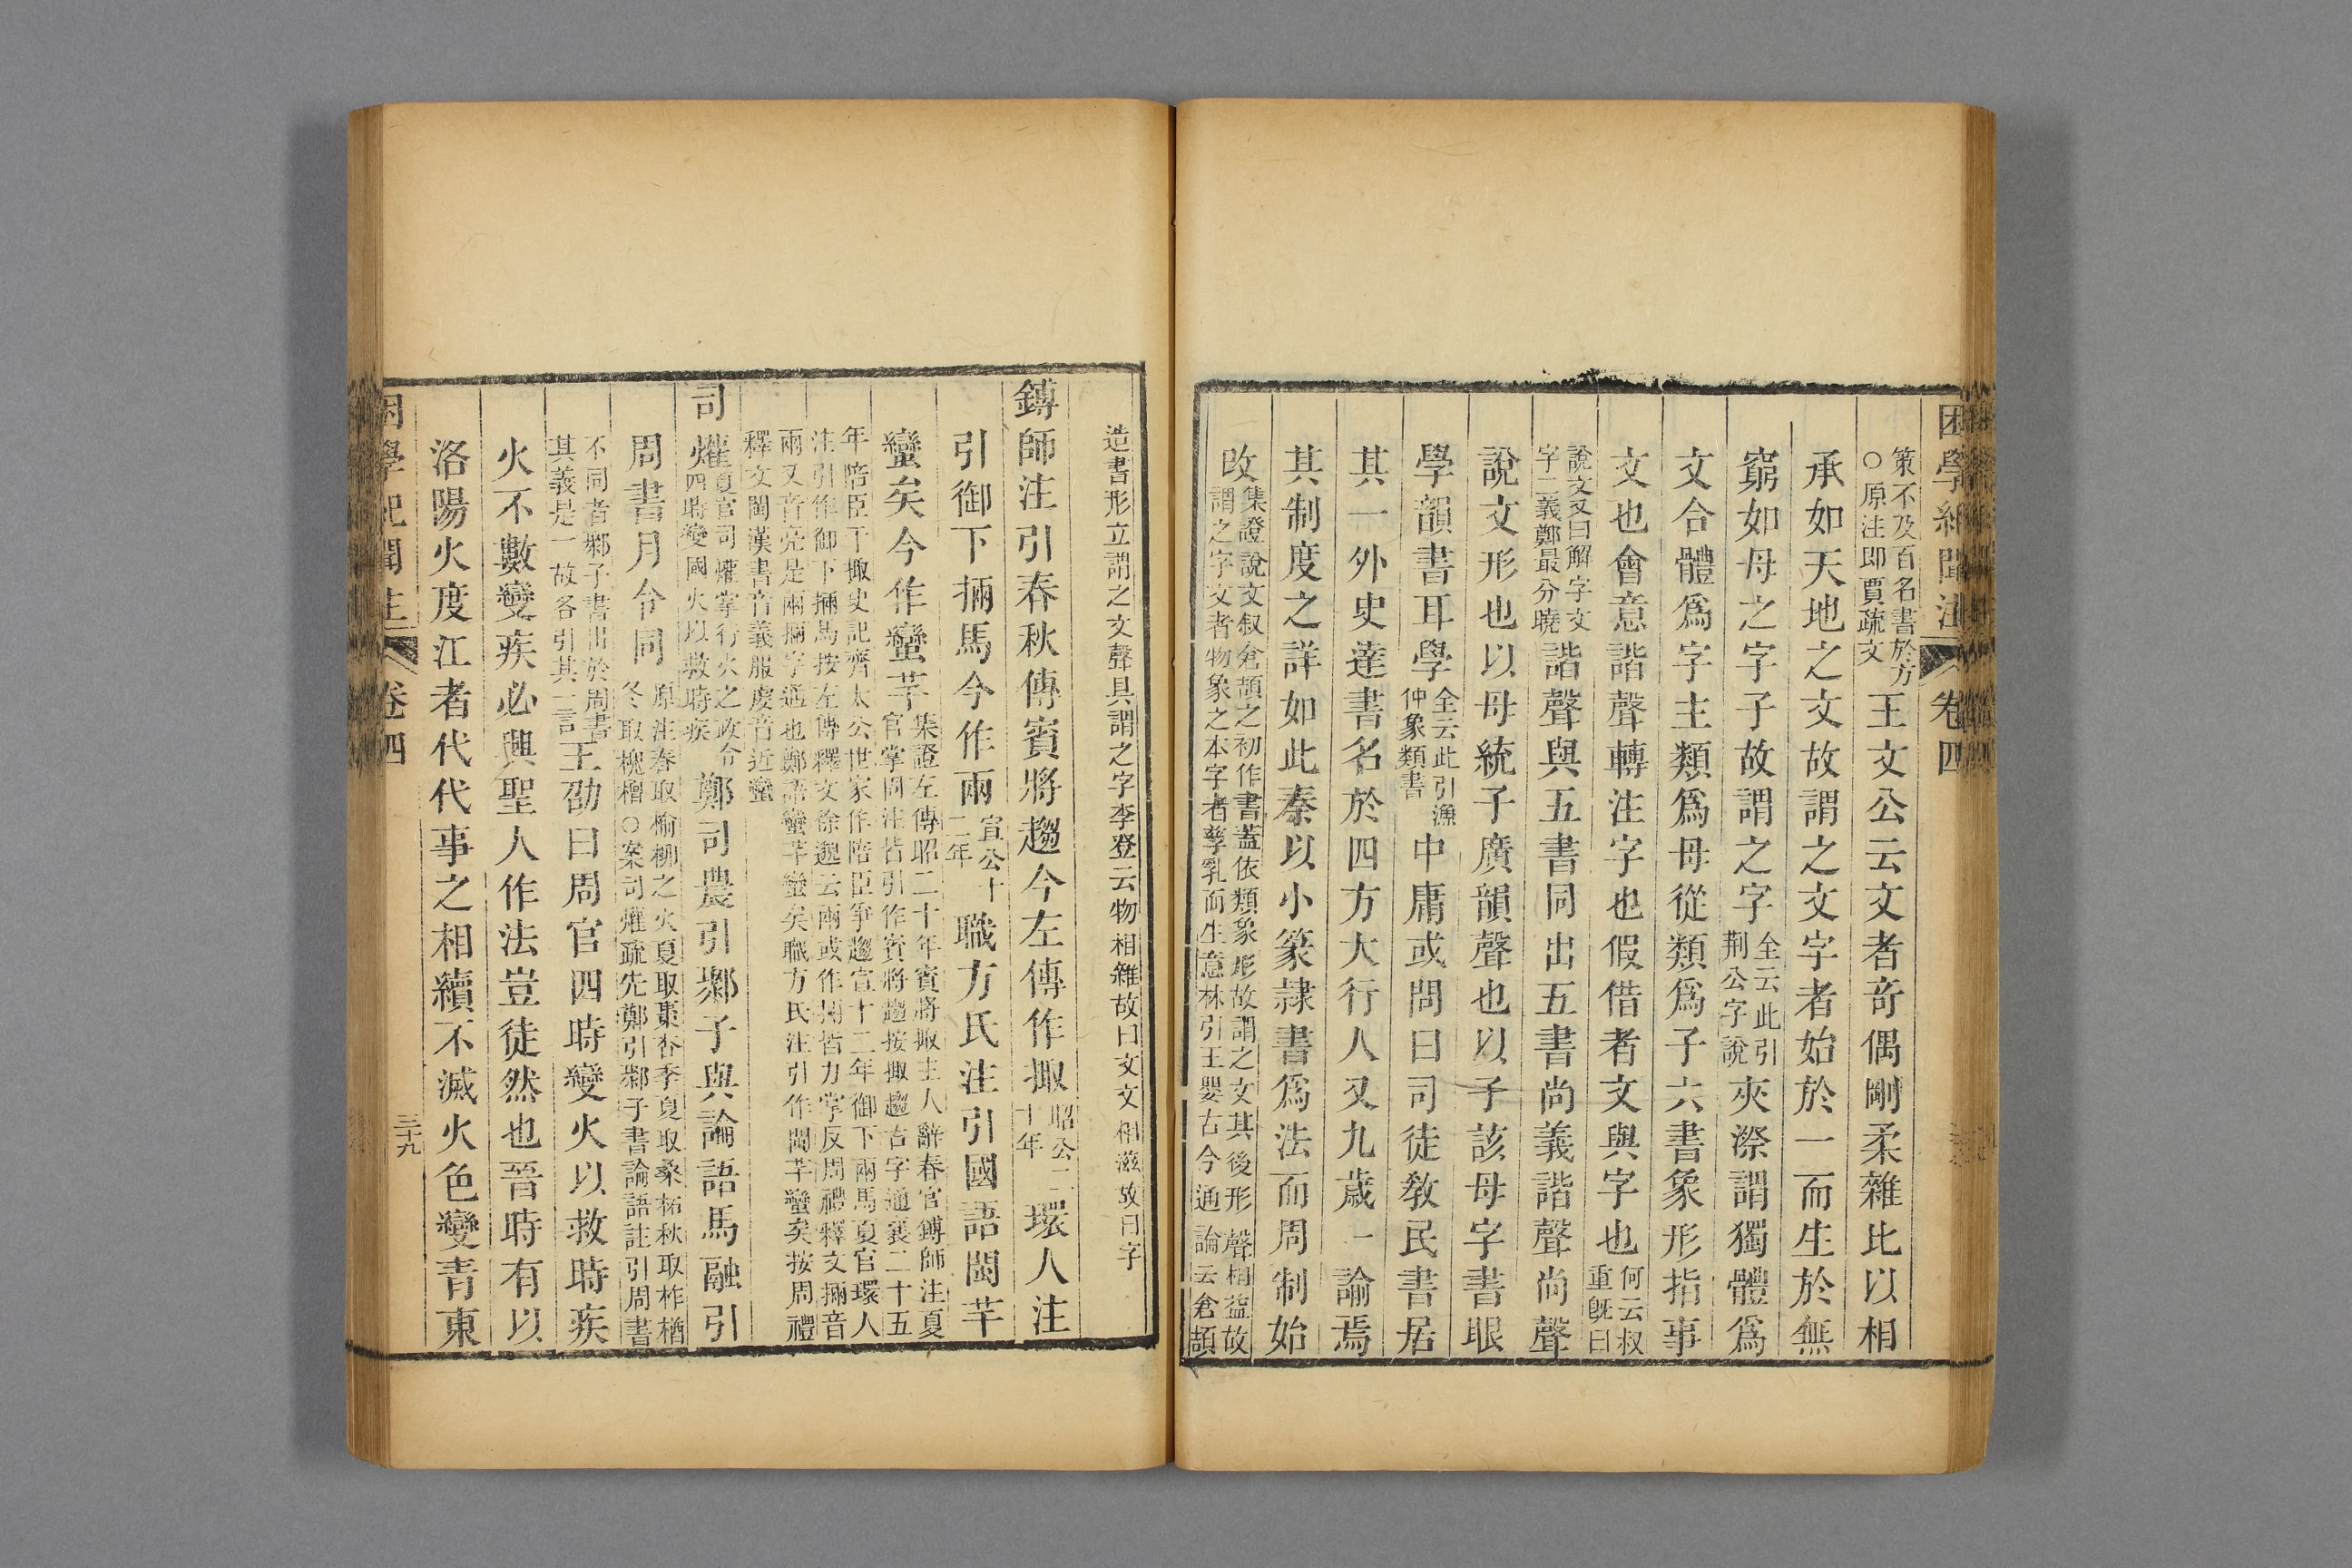 困學紀聞注 卷四
策不及百名書於方
○原注即賈疏文
王文公云文者奇偶剛柔雜比以相
承如天地之文故謂之文字者始於一而生於無
窮如母之字子故謂之字
全云此引
荆公字說
夾漈謂獨體爲
文合體爲字主類爲母從類爲子六書象形指事
文也會意諧聲轉注字也假借者文與字也
何云叔
重旣曰
說文又曰解字文
字二義鄭最分曉
諧聲與五書同出五書尚義諧聲尚聲
說文形也以母統子廣韻聲也以子該母字書眼
學韻書耳學
全云此引漁
仲象類書
中庸或問曰司徒敎民書居
其一外史達書名於四方大行人又九歲一諭焉
其制度之詳如此秦以小篆隷書爲法而周制始
改
集證說文叙倉頡之初作書蓋依類象形故謂之文其後形聲相益故
謂之字文者物象之本字者孳乳而生意林引王嬰古今通論云倉頡
造書形立謂之文聲具謂之字李登云物相雜故曰文文相滋故曰字
鎛師注引春秋傳賓將趨今左傳作掫
昭公二
十年
環人注
引御下掚馬今作兩
宣公十
二年
職方氏注引國語閩芊
蠻矣今作蠻芊
集證左傳昭二十年賓將掫主人辭春官鎛師注夏
官掌固注皆引作賓將趨按掫趨古字通襄二十五
年陪臣干掫史記齊太公世家作陪臣爭趨宣十二年御下兩馬夏官環人
注引作御下掚馬按左傳釋文徐邈云兩或作掚皆力掌反周禮釋文掚音
兩又音亮是兩掚字通也鄭語蠻芊蠻矣職方氏注引作閩芊蠻矣按周禮
釋文閩漢書音義服虔音近蠻
司爟
夏官司爟掌行火之政令
四時變國火以救時疾
鄭司農引鄹子與論語馬融引
周書月令同
原注春取榆柳之火夏取棗杏季夏取桑柘秋取柞楢
冬取槐檀○案司爟疏先鄭引鄹子書論語註引周書
不同者鄹子書出於周書
其義是一故各引其一言
王劭曰周官四時變火以救時疾
火不數變疾必興聖人作法豈徒然也晉時有以
洛陽火度江者代代事之相續不滅火色變青東
困學紀聞注 卷四 三十九